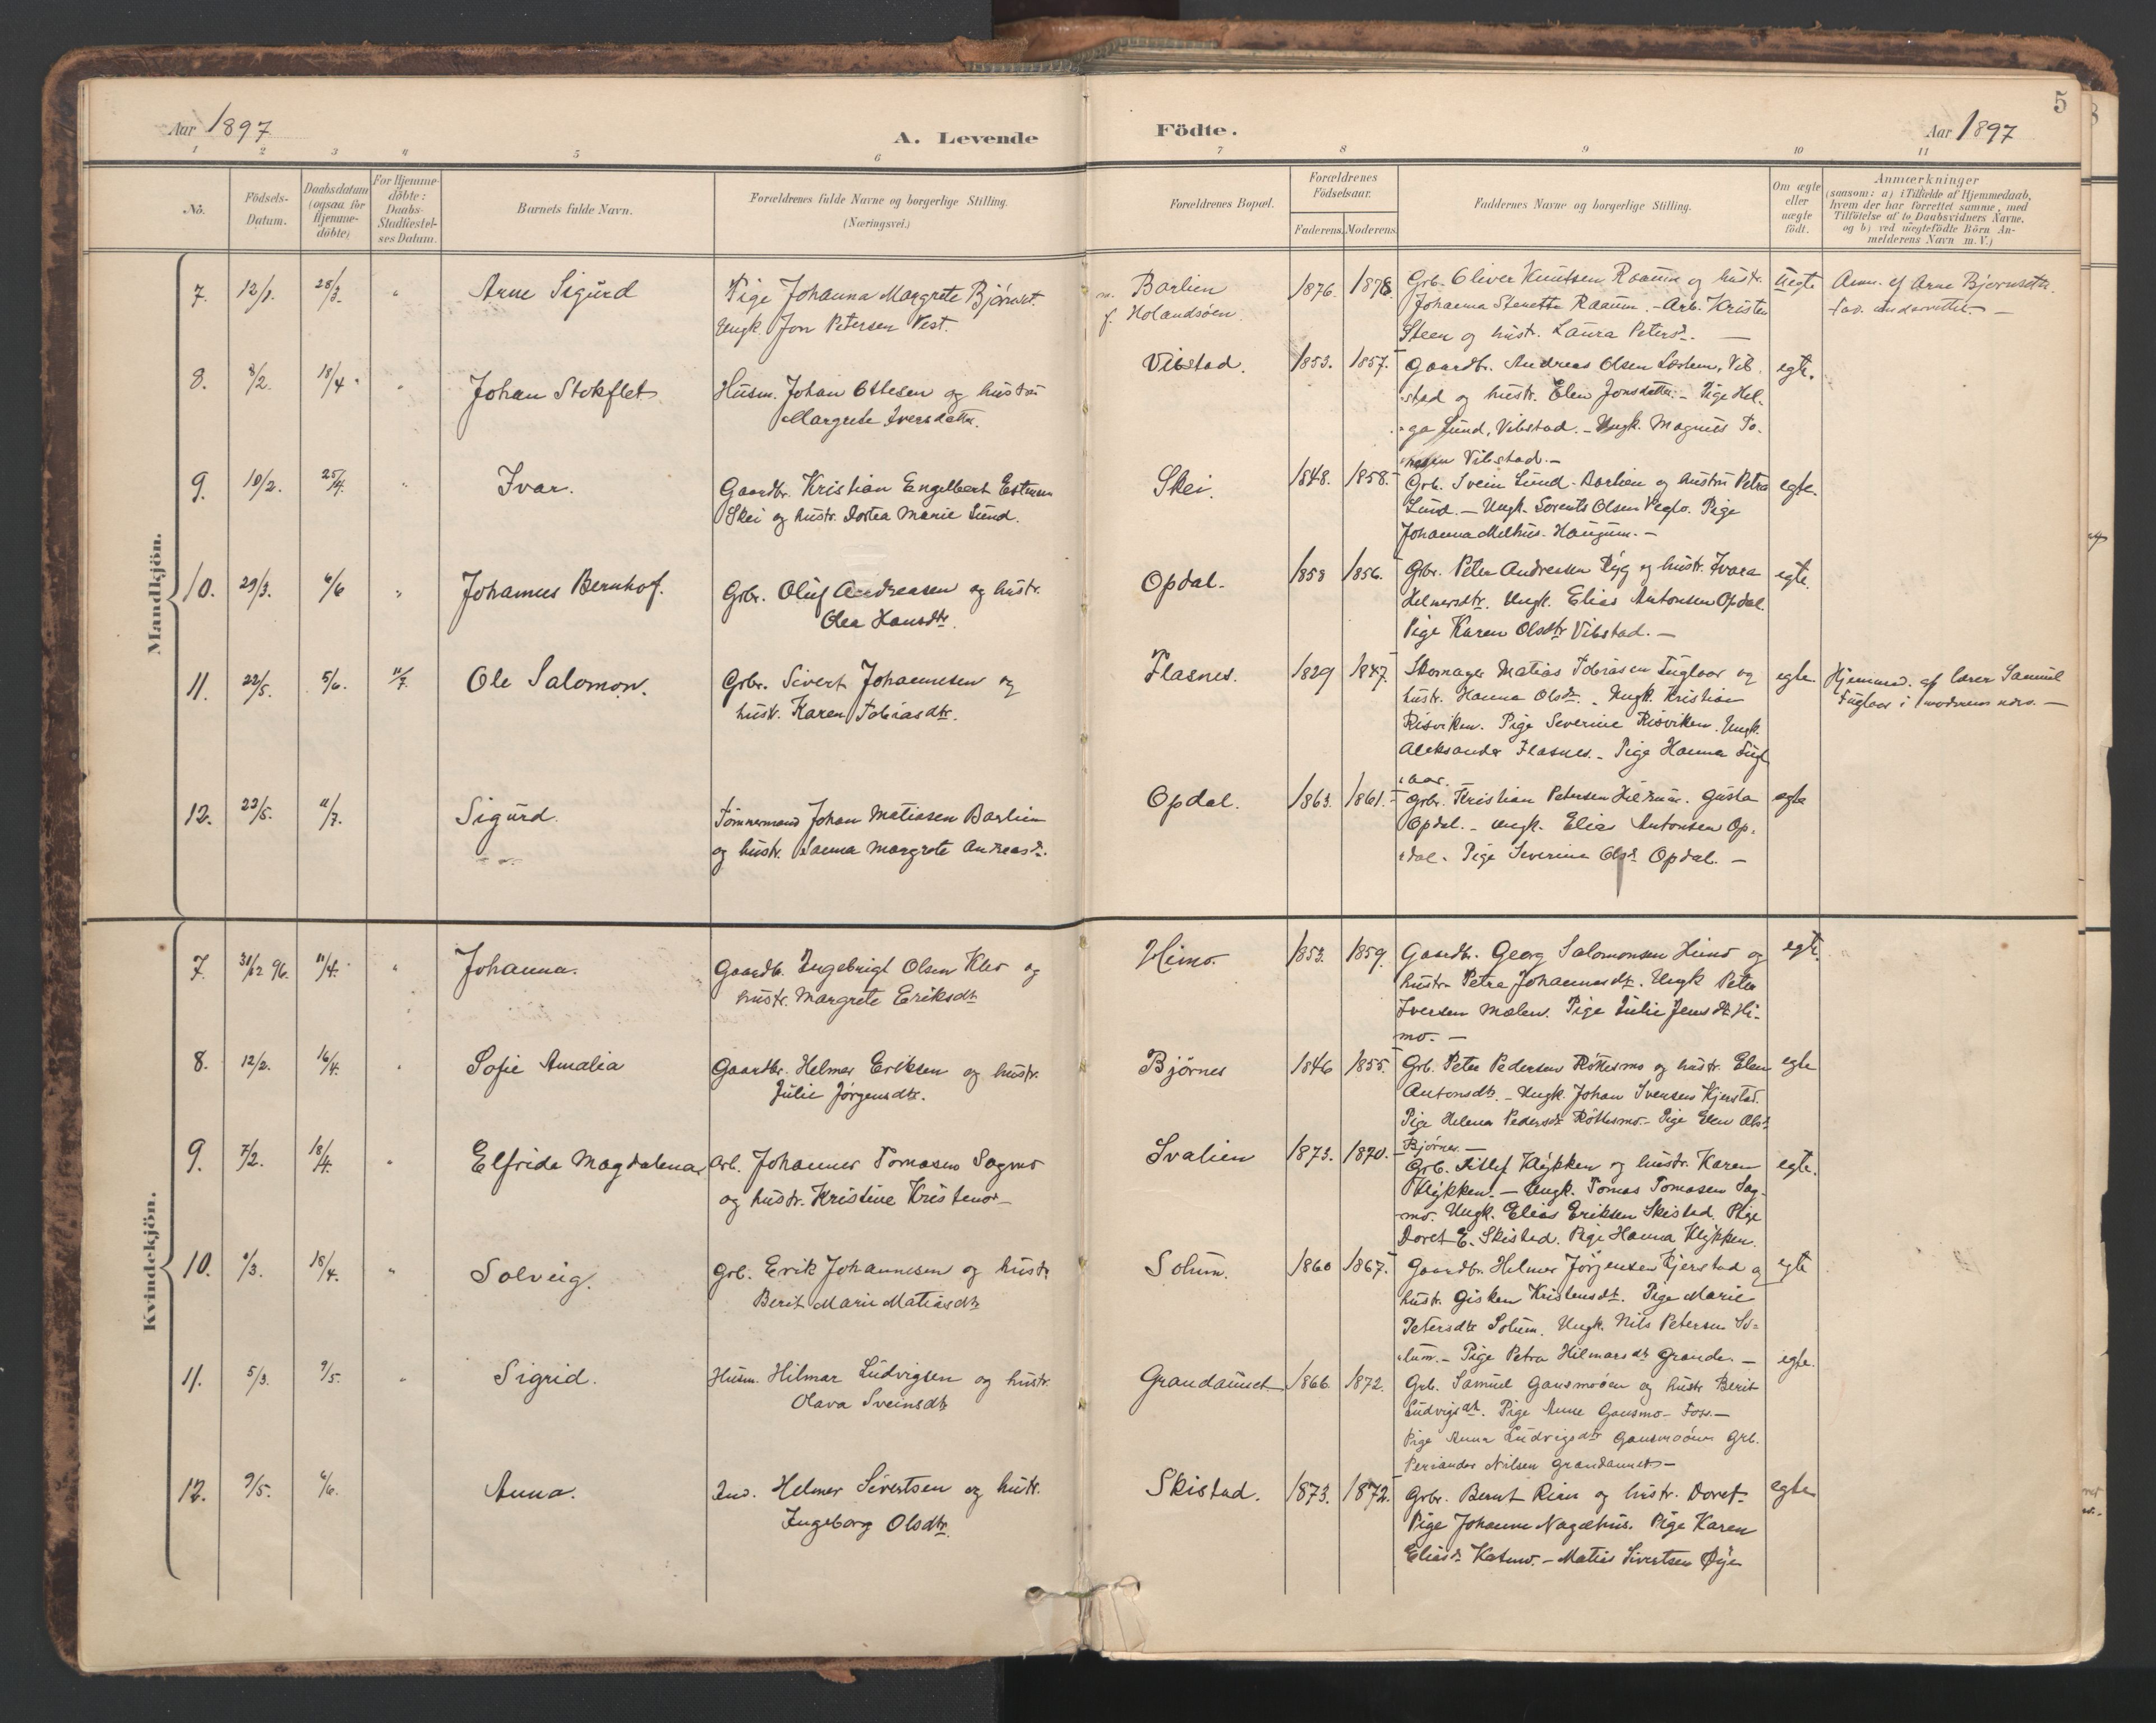 5
Aar 1897
A. Levende
Födte.
Aar 1897
1 2 3 4 5 6 7 8 9 10 11
No.
Födsels-Datum.
Daabsdatum (ogsaa for Hjemme-döbte)
For Hjemme-döbte: Daabs-Stadfæstel-ses Datum.
Barnets fulde Navn.
Forældrenes fulde Navne og borgerlige Stilling.
(Næringsvei.)
Forældrenes Bopæl.
Forældrenes Födselsaar.
Faderens. Moderens.
Faddernes Navne og borgerlige Stilling.
Om ægte eller uægte födt.
Anmærkninger
(saasom: a) i Tilfælde af Hjemmedaab,
hvem der har forrettet samme, med
Tilföielse af to Daabsvidners Navne,
og b) ved uegtefödte Börn An-
melderens Navn m. V.)
Mandkjön.
7. 12/1. 28/3. " Arne Sigurd
Pige Johanna Margrete Bjørnset.
Ungk. Jon Petersen Vest.
m. Barlien
f. Holandsöen.
1876. 1878
Grb. Oliver Knutsen Raaum og hustr.
Johanna Raaum. - Arb. Kristen
Steen og hust. Laura Petersdr. —
Uegte
Anm. af Arne Bjørnsetr.
fad. underrettet. —
8. 8/2. 18/4. " Johan Stokflet
Husm. Johan Ottesen og hustru
Margrete Iversdatter.
Vibstad.
1853. 1857.
Gaardbr. Andreas Olsen Vib-
stad og hustr. Elen Jonsdatter. - Pige Hel-
ga Lund, Vibstad. - Ungk. Magnus To-
Vibstad. -
egte.
9. 10/2. 25/4. " Ivar.
Gaardbr. Kristian Engelbert Estensen
Skei og hustr. Dortea Marie Lund.
Skei.
1848. 1858.
Grb. Svein Lund - Barlien og hustru Petra
Lund. - Ungk. Sorents Olsen Veglo. Pige
Johanna Melhus - Haugum. -
egte.
10. 29/3. 6/6 " Johannes Bernhof.
Grbr. Oluf Andreasen og hustr.
Olea Hansdtr.
Opdal.
1858 1856.
Grbr. Peter Andresen Ryg og hustr. Ivara
Helmersdtr. Ungk. Elias Antonsen Opdal.
Pige Karen Olsdtr Vibstad. -
egte.
11. 22/5. 5/6. 11/7. Ole Salomon.
Grbr. Sivert Johannesen og
hustr. Karen Tobiasdtr.
Flasnes.
1829 1847.
Skomager Matias Tobiasen Fuglaar og
hustr. Hanna Olsdr. Ungk. Kristian
Risviken. Pige Severine Risviken. Ungk.
Aleksander Flasnes. - Pige Hanna Fugl
aar.
egte.
Hjemmed. af lærer Samuel
Fuglaar i moderens nærv. —
12. 23/5. 11/7. Sigurd.
Tömmermand Johan Matiasen Barlien
og hustr. Sanna Margrete Andreasdr.
Opdal.
1863. 1861.
Grbr. Kristian Petersen Gusta
Opdal. - Ungk. Elias Antonsen Op-
dal. Pige Severine Olsdr Opdal. —
egte
Kvindekjön.
7. 31/12 96. 11/4. " Johanna.
Gaardb. Ingebrigt Olsen Klev og
hustr. Margrete Eriksdtr
Himo.
1853. 1859.
Gaardbr. Georg Salomonsen Himo og
hustr. Petra Johannesdtr. Ungk Peter
Iversen Moleu. Pige Julie Jensdtr Hi-
mo. —
egte.
8. 12/2. 16/4. " Sofie Amalia
Gaardbr. Helmer Eriksen og hustr.
Julie Jörgensdtr.
Björnes
1846 1855.
Grb. Peter Pedersen Röttesmo og hustr. Elen
Antonsdtr. - Ungk. Johan Svensen Kjerstad.
Pige Helena Pedersdr Röttesmo. - Pige Elen Olsdr
Björnes. —
egte
9. 7/2. 18/4. " Elfrida Magdalena
Arb. Johannes Tomasen Sagmo
og hustr. Kristine Kristendr -
Svalien
1873. 1870.
Grb. Ditlef Klykken og hustr. Karen
Klykken. - Ungk. Tomas Tomasen Sag-
mo. Ungk. Elias Eriksen Skistad. Pige
Doret E. Skistad. Pige Hanna Klykken.
egte.
10. 1/3. 18/4. " Solveig.
Grb. Erik Johannesen og hustr
Berit Marie Matiasdtr
Solum.
1860 1867.
Gaardbr. Helmer Jörgensen Kjerstad og
hustr. Gisken Kristensdtr. Pige Marie
Petersdtr Solum. Ungk. Nils Petersen So-
lum. - Pige Petra Hilmarsdtr Grande. —
egte
11. 5/3. 9/5. " Sigrid.
Husm. Hilmar Ludvigsen og hustr.
Olava Sveinsdtr
Grandaunet.
1866. 1872.
Grb. Samuel Gansmoöen og hustr Berit
Ludvigsdtr. Pige Anne Gansmo - Foss. —
Pige Anna Ludvigsdtr Gansmoöen Grb.
Periander Nilsen Grandaunet -
egte.
12. 9/5. 6/6. Anna.
Ind. Helmer Sivertsen og hustr.
Ingeborg Olsdtr.
Skistad.
1873. 1872.
Grbr. Bernt Rian og hustr. Doret -
Pige Johanne Nagelhus. Pige Karen
Eliasdr Katmo. - Matis Sivertsen Öye
egte